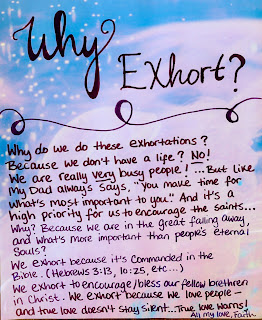 Why
Exhort?
Why do we do these exhortations?
Because we don't have a life? No!
We are really very busy people! ...But like
my Dad always says, "You make time for
what's most important to you." And it's a
high priority for us to encourage the saints...
Why? Because we are in the great falling away,
and what's more important than people's eternal
Souls?
We exhort because it's Commanded in the
Bible. (Hebrews 3:13, 10:25, etc...)
We exhort to encourage/bless our fellow brethren
in Christ. We exhort because we love people-
and true love doesn't stay silent...True love warns!
All my love, Faith